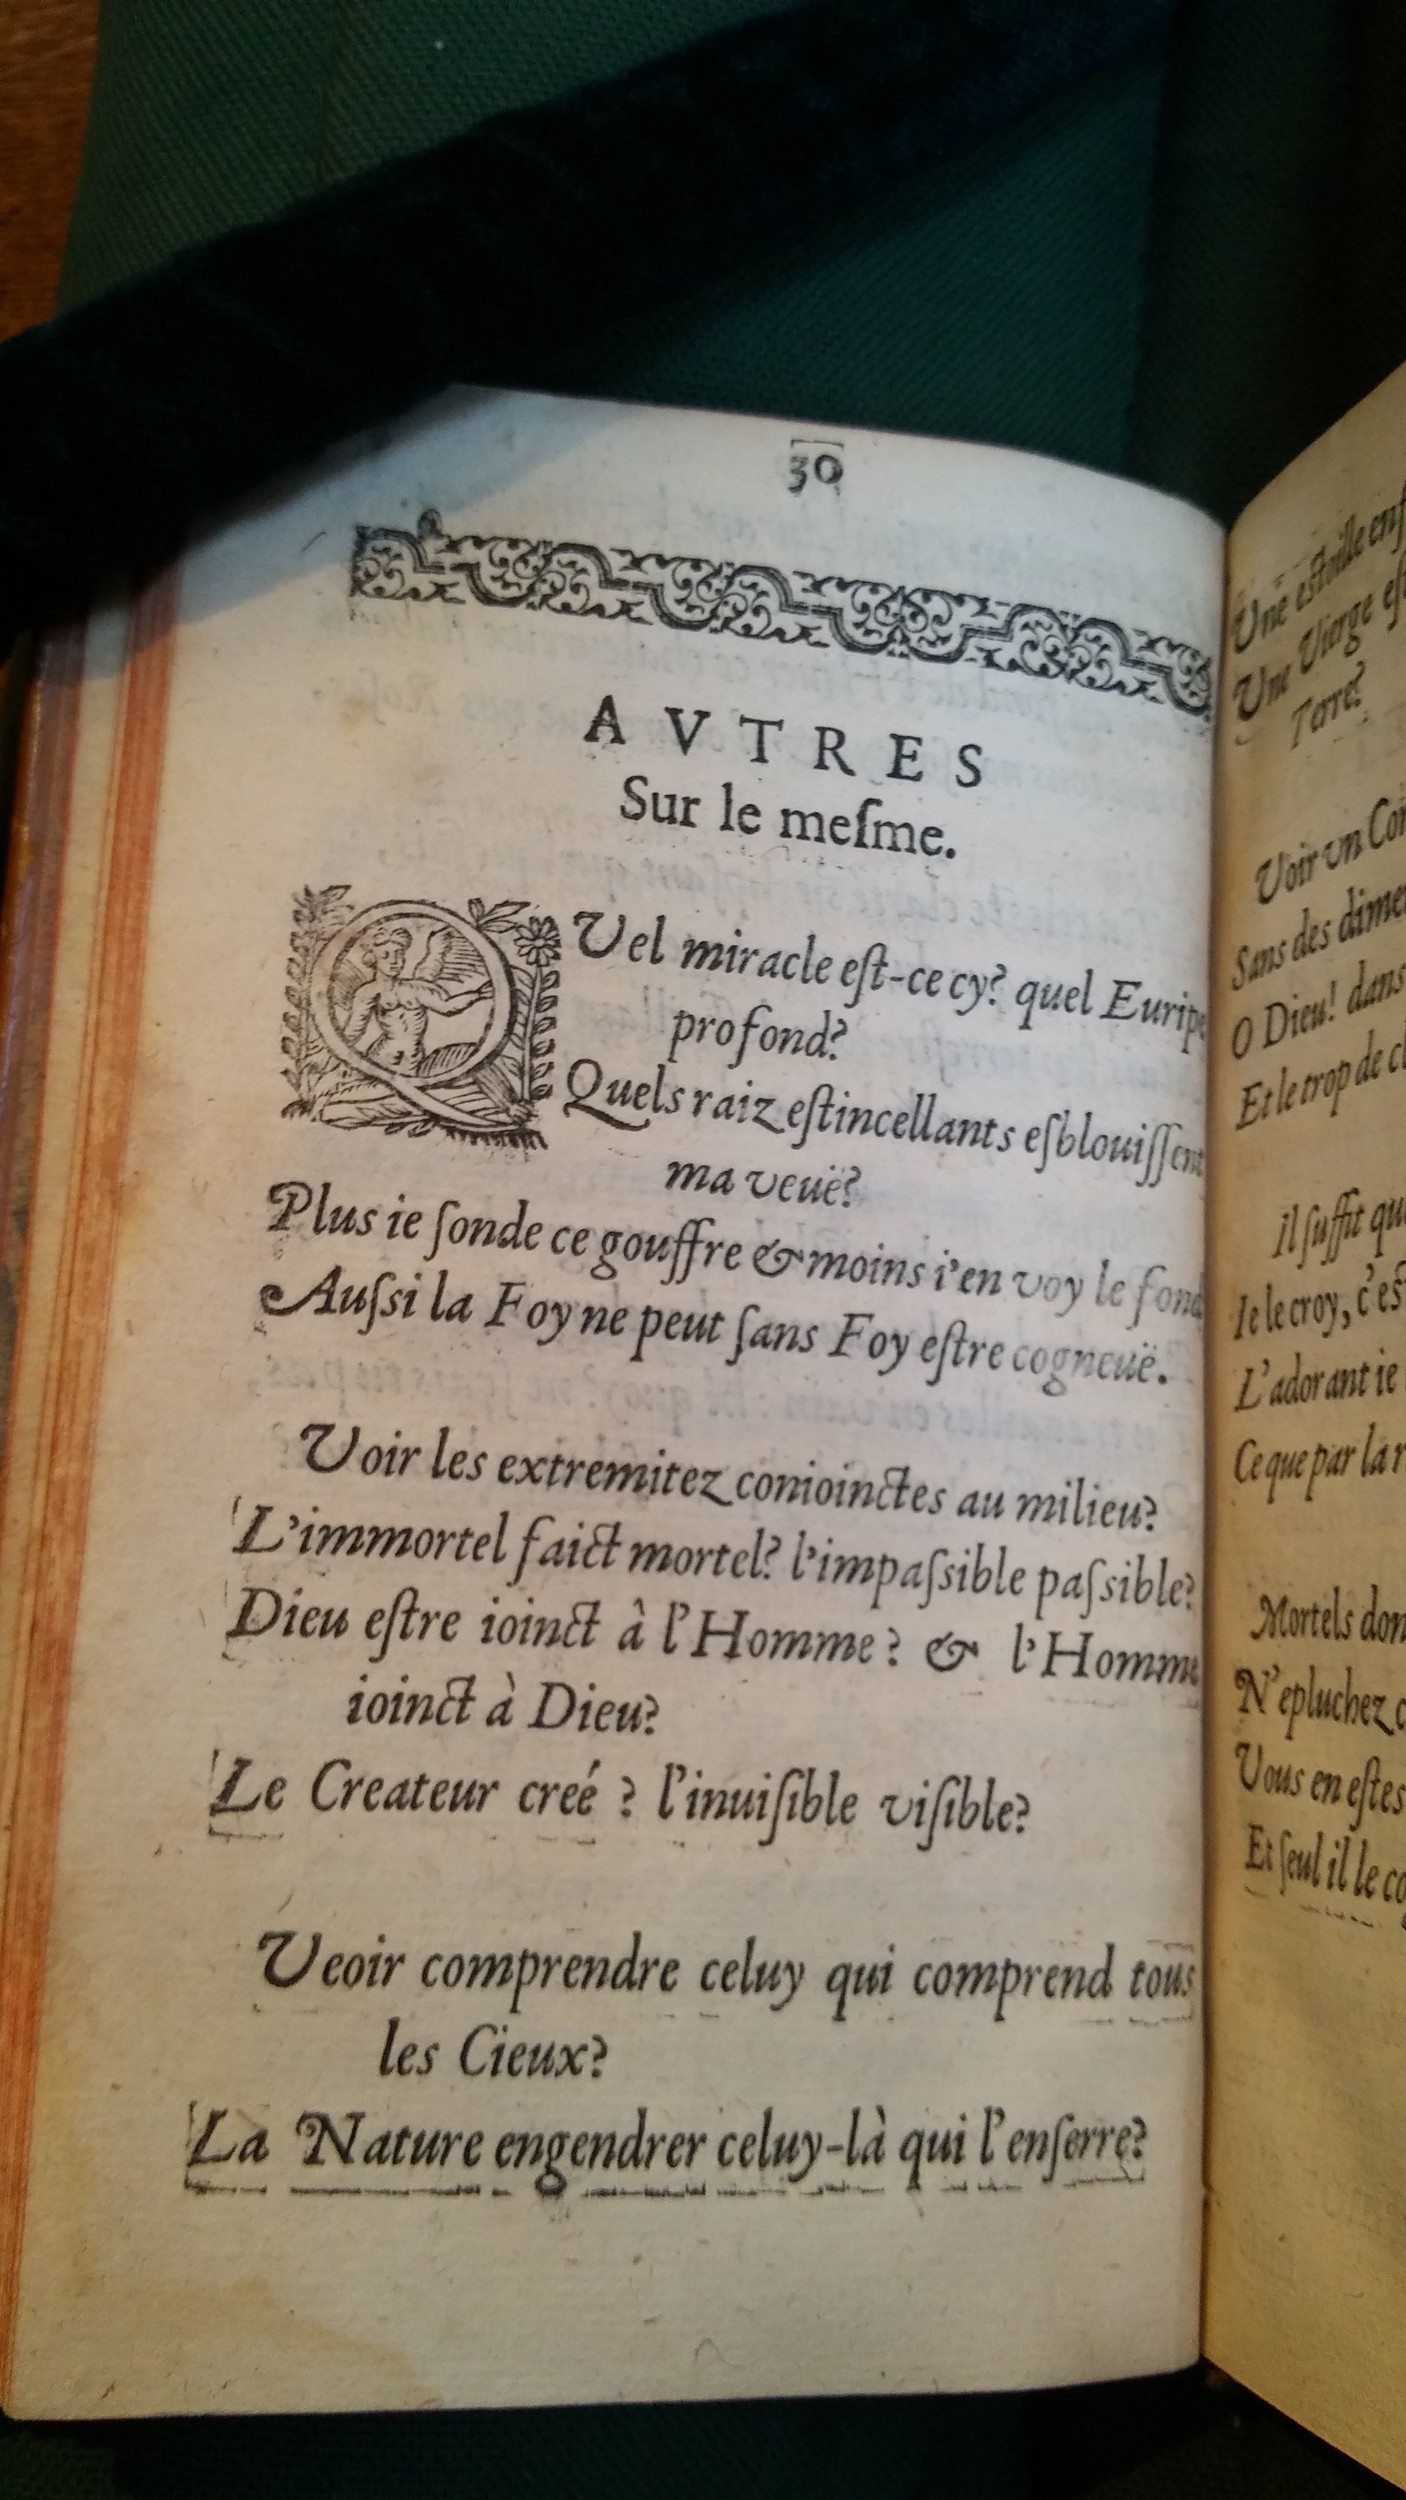 30
AVTRES
Sur le meſme.
QVel miracle eſt-ce cy? quel Euripe
profond?
Quels raiz eſtincellants eſblouiſſent
ma veuë?
Plus ie ſonde ce gouffre & moins i'en voy le fond
Auſsi la Foy ne peut ſans Foy eſtre cogneuë.
Voir les extremitez conioinctes au milieu?
L'immortel faict mortel? l'impaſsible paſsible?
Dieu eſtre ioinct à l'Homme? & l'Homme
ioinct à Dieu?
Le Createur creé? l'inuiſible viſible?
Veoir comprendre celuy qui comprend tous
les Cieux?
La Nature engendrer celuy-là qui l'enſerre?
Une eſtoille
Une Vierge
Terre?
Voir vn
Sans des
O Dieu! dans
Et le trop de
Il ſuffit
Ie le croy,
L'adorant ie
Ce que par la
Mortels
N'epluchez
Vous en eſtes
Et ſeul il le